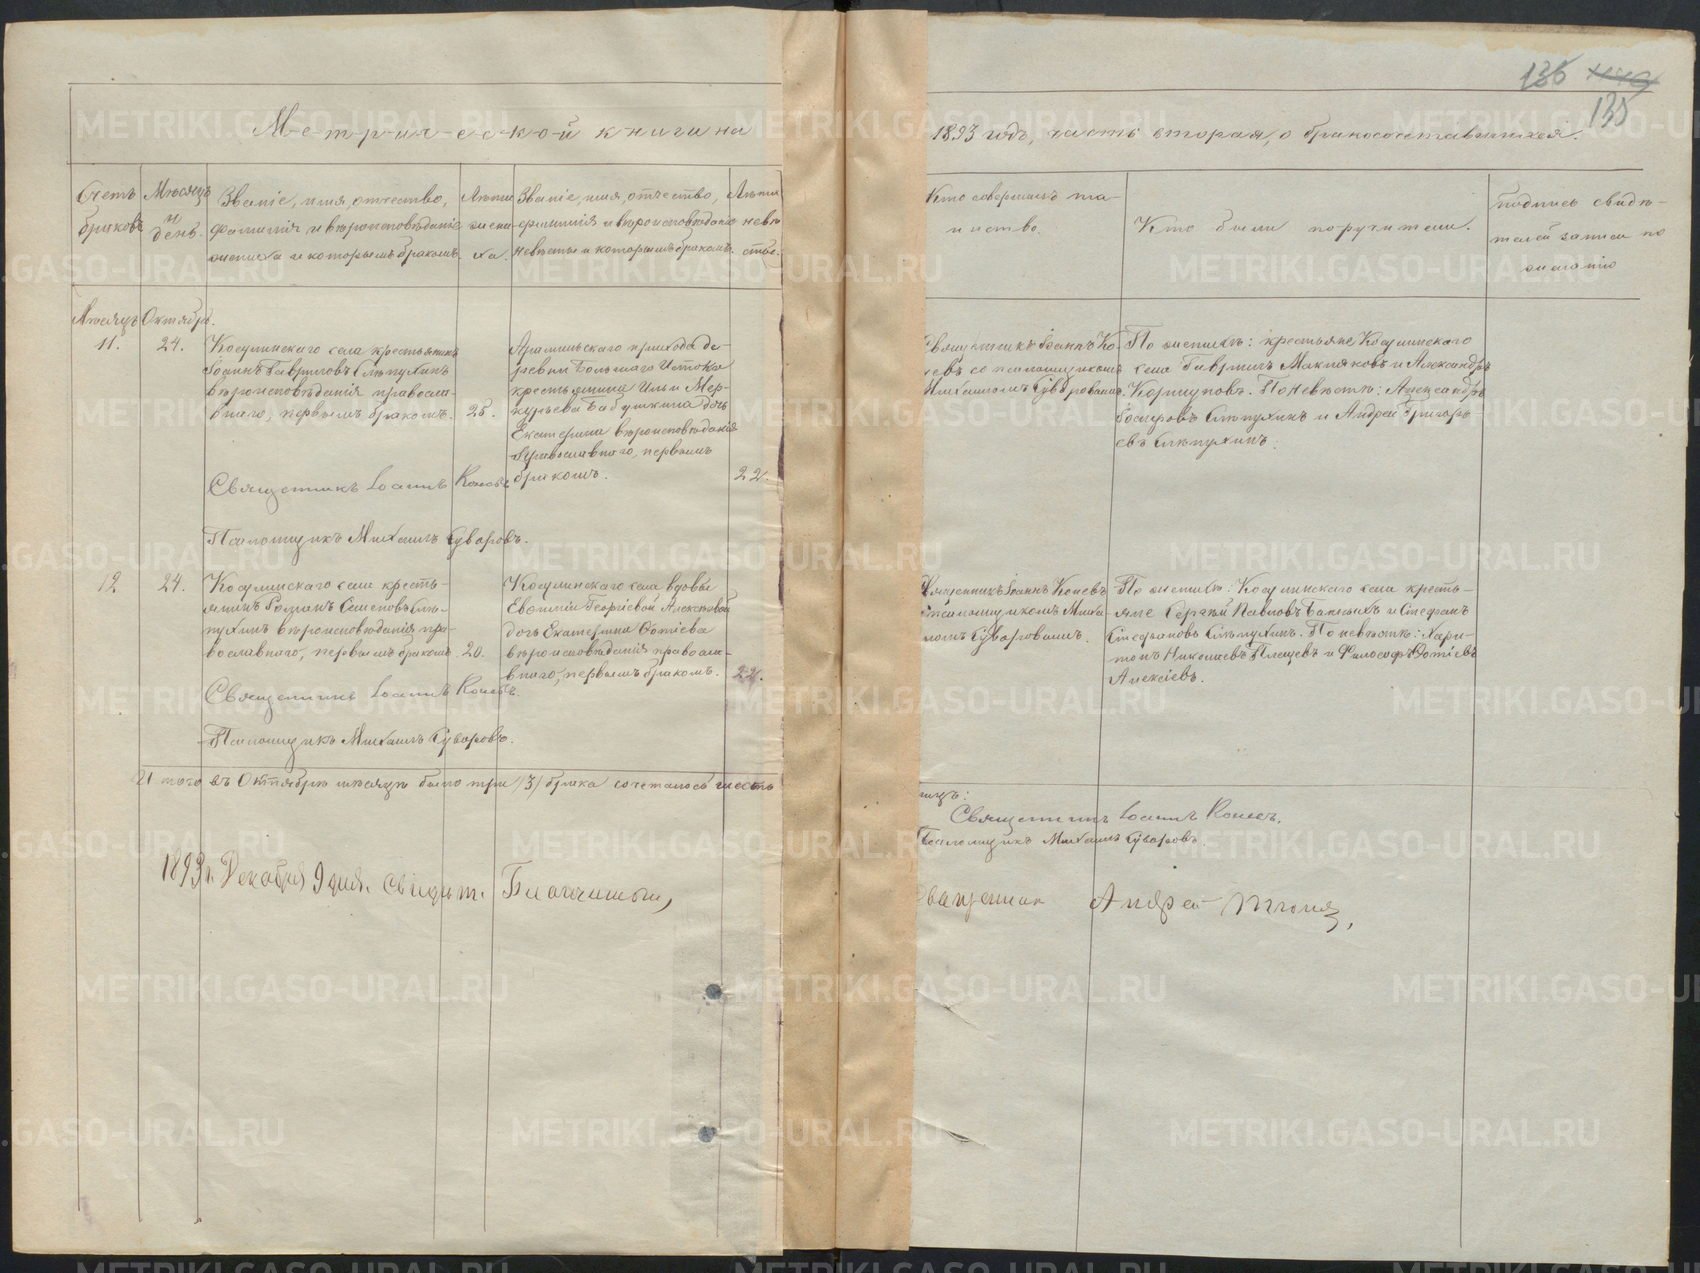 136
135
Метрической книги на
1893 годъ, часть вторая, о бракосочетавшихся.
Счетъ браковъ
Мѣсяцъ и день.
Званіе, имя, отчество,
фамилія и вѣроисповѣданіе
жениха и которымъ бракомъ.
Лѣта жени-
ха.
Званіе, имя, отчество,
фамилія и вѣроисповѣданіе
невѣсты и которымъ бракомъ.
Лѣта
невѣ
сты.
Кто совершалъ та-
инство.
Кто были поручители.
Подпись свидѣ-
телей записи по
желанію
Мѣсяцъ Октябрь.
11.
24.
Косулинскаго села крестьянинъ
Іоаннъ Гавриловъ Слѣпухинъ
вѣроисповѣданія православ-
наго, первымъ бракомъ.
25.
Арамильскаго прихода де-
ревни Большаго Истока
крестьянина Ильи Мер-
курьева Бабушкина дочь
Екатерина вѣроисповѣданія
православнаго, первымъ
бракомъ.
22.
Священникъ Іоаннъ Ко-
невъ со псаломщикомъ
Михаиломъ Суворовымъ.
По женихѣ: крестьяне Косулинскаго
села Гавріилъ Макляковъ и Александръ
Коршуновъ. По невѣстѣ: Александръ
Слѣпухинъ и Андрей Григорь-
евъ Слѣпухинъ.
Священникъ Іоаннъ Коневъ
Псаломщикъ Михаилъ Суворовъ.
12
24.
Косулинскаго села кресть-
янинъ Романъ Семеновъ Слѣ-
пухинъ вѣроисповѣданія пра-
вославнаго, первымъ бракомъ.
20.
Косулинскаго села вдовы
Евѳиміи Георгіевой Алексѣевой
дочь Екатерина Фотіева
вѣроисповѣданія православ-
наго, первымъ бракомъ.
22.
Священникъ Іоаннъ Коневъ
псаломщикомъ Миха-
иломъ Суворовымъ.
По женихѣ: Косулинскаго села кресть-
яне Сергѣй Павловъ и Стефанъ
Слѣпухинъ. По невѣстѣ: Хари-
тонъ Николаевъ Плещевъ и Философъ Фотіевъ
Алексѣевъ.
Священникъ Іоаннъ Коневъ.
Псаломщикъ Михаилъ Суворовъ.
Итого въ Октябрѣ мѣсяцѣ было три /3/ брака сочеталось шесть
лицъ:
Священникъ Іоаннъ Коневъ.
Псаломщикъ Михаилъ Суворовъ.
1893 г. Декабря 9 дня. Свидѣт. Благочинный,
Священник Андрей